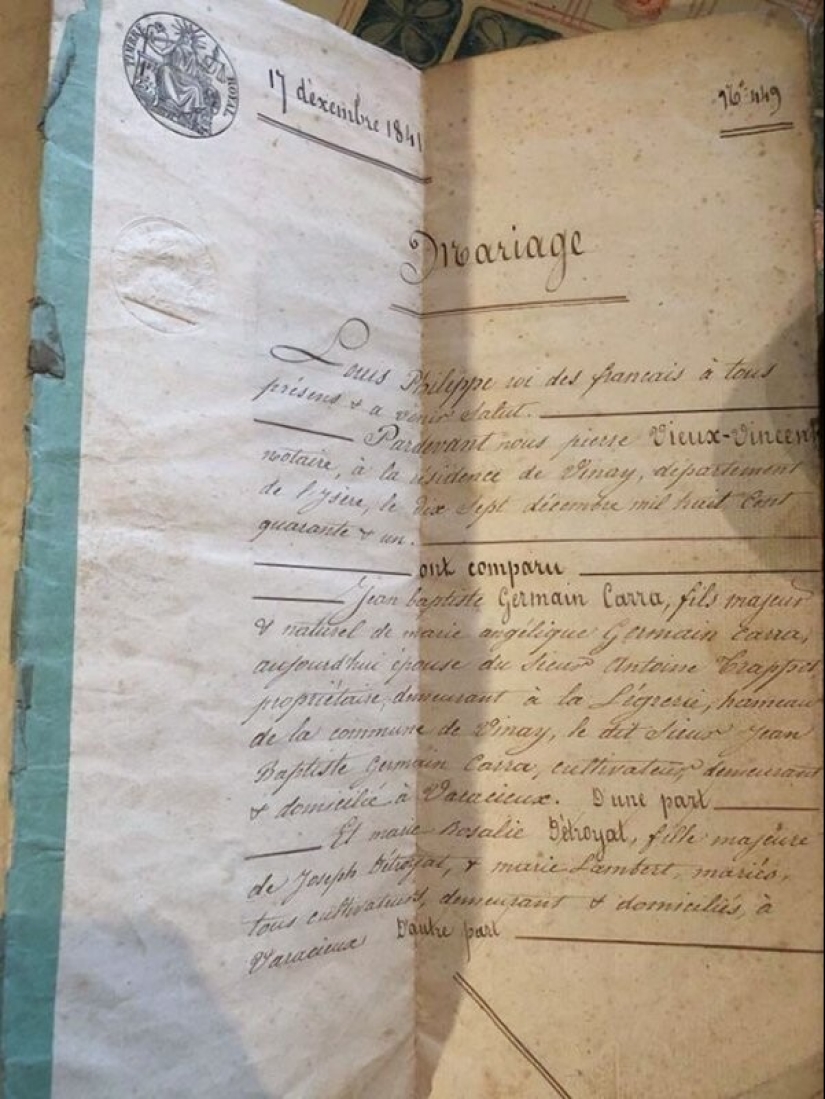 TIMBRE ROYAL
17 décembre 1841
N° 449
Mariage
Louis Philippe roi des francais à tous
présens & a venir Salut.
Pardevant nous pierre Vieux-Vincent
notaire, à la résidence de Vinay, département
de l'ysère, le dix sept décembre mil huit Cent
quarante & un.
ont comparu
Jean baptiste Germain Carra, fils majeur
& naturel de marie angélique Germain carra,
aujourd'hui épouse du Sieur Antoine Trappot
propriétaire, demeurant à la Légrerie, hameau
de la commune de Vinay, le dit Sieur Jean
Baptiste Germain Carra, cultivateur, demeurant
& domicilié à Varacieux. D'une part
Et marie Rosalie Détroyat, fille majeure
de Joseph Détroyat, & marie Lambert, mariés,
tous cultivateurs, demeurant & domiciliés, à
Varacieux D'autre part